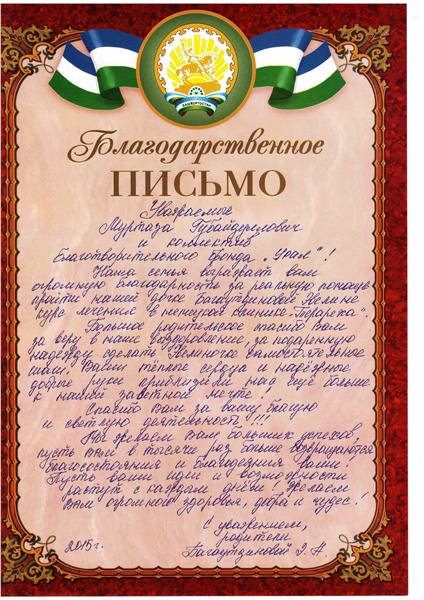 БАШКОРТОСТАН
Благодарственное
ПИСЬМО
Уважаемые
Муртаза Губайдуллович
и коллектив
благотворительного фонда „Урал"!
Наша семья выражает вам
огромную благодарность за реальную помощь
пройти нашей дочке Багаутдиновой Ясмине
курс лечения в клинике
Большое родительское спасибо Вам
за веру в наше выздоровление, за подаренную
надежду сделать Ясминочке самостоятельные
шаги. Ваши тёплые сердца и надёжные
добрые руки приблизили нас ещё больше
к нашей заветной мечте!
Спасибо Вам за вашу благую
и светлую деятельность!!!
Мы желаем Вам больших успехов,
пусть Вам в тысячи раз больше возвращаются
благосостояния и благодеяния ваши!
Пусть ваши идеи и возможности
растут с каждым днём! Желаем
Вам огромного здоровья, добра и чудес!
С уважением,
родители
2015г.
Багаутдиновой Я. А.